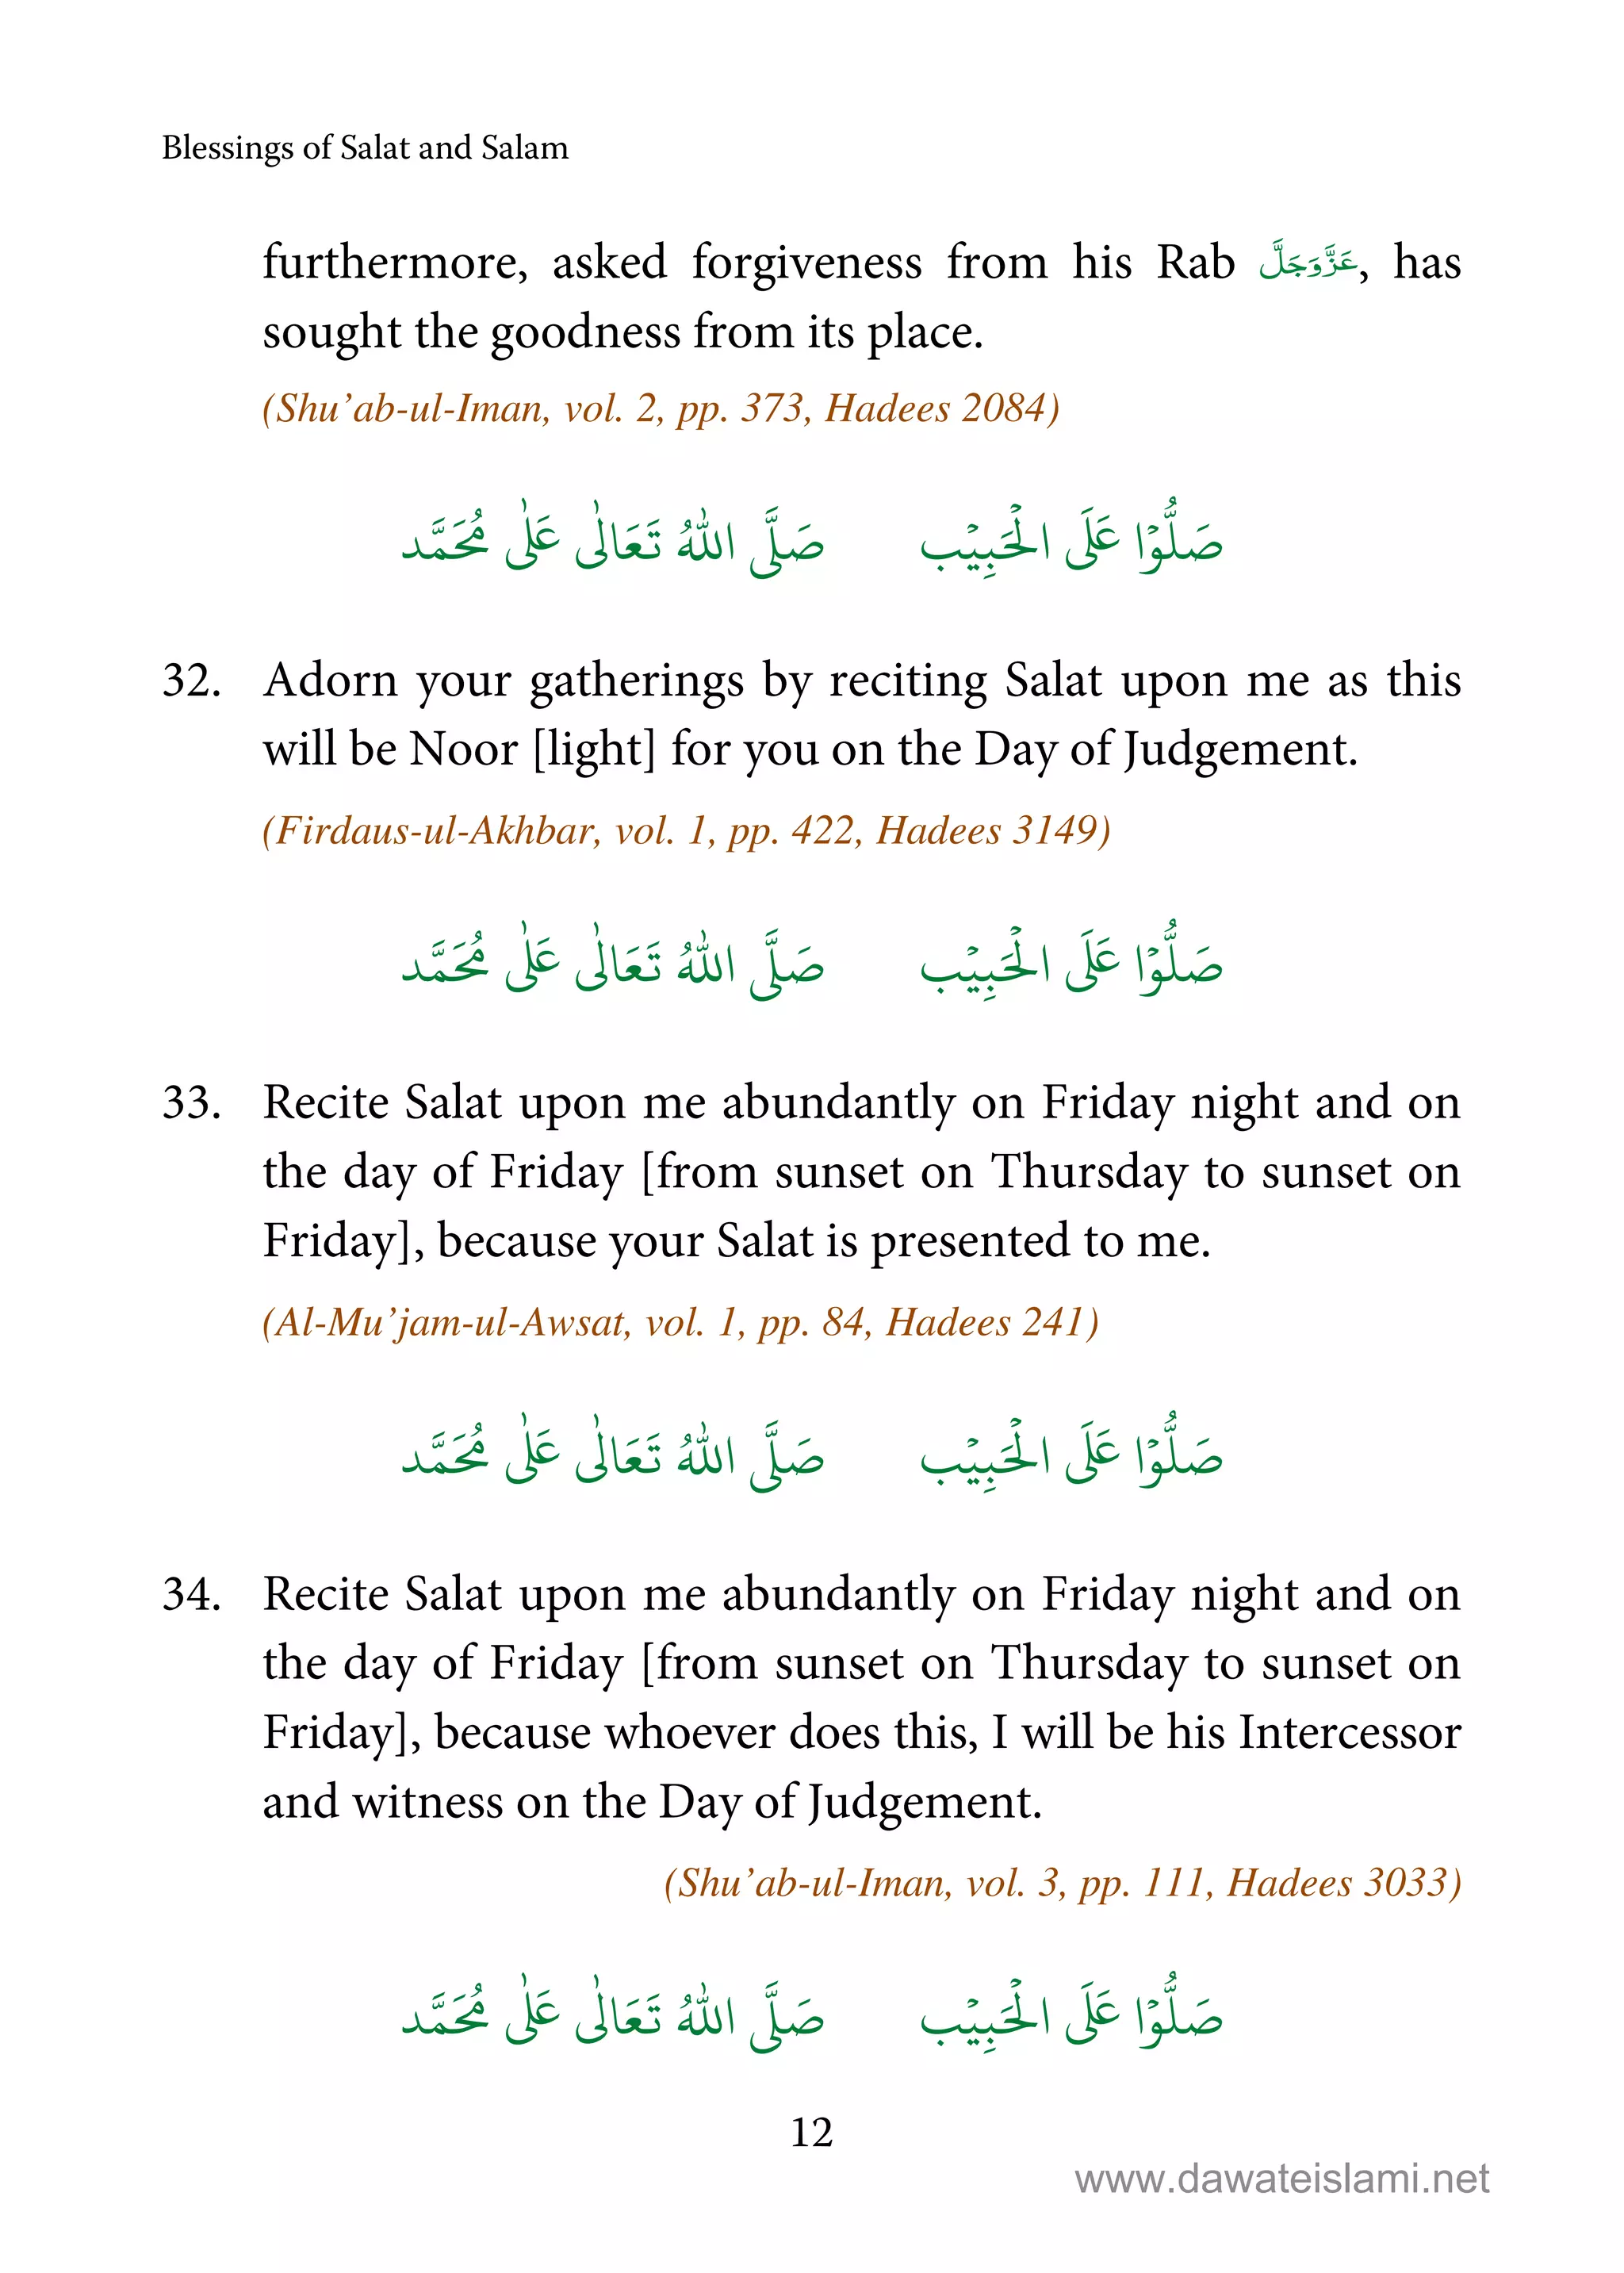 Blessings of Salat and Salam
furthermore, asked forgiveness from his Rab عَزَّوَجَلَّ, has
sought the goodness from its place.
(Shu’ab-ul-Iman, vol. 2, pp. 373, Hadees 2084)
صَلُّوْا عَلَى الْحَبِيْب صَلَّى اللهُ تَعَالٰى عَلٰى مُحَمَّد
32. Adorn your gatherings by reciting Salat upon me as this
will be Noor [light] for you on the Day of Judgement.
(Firdaus-ul-Akhbar, vol. 1, pp. 422, Hadees 3149)
صَلُّوْا عَلَى الْحَبِيْب صَلَّى اللهُ تَعَالٰى عَلٰى مُحَمَّد
33. Recite Salat upon me abundantly on Friday night and on
the day of Friday [from sunset on Thursday to sunset on
Friday], because your Salat is presented to me.
(Al-Mu’jam-ul-Awsat, vol. 1, pp. 84, Hadees 241)
صَلُّوْا عَلَى الْحَبِيْب صَلَّى اللهُ تَعَالٰى عَلٰى مُحَمَّد
34. Recite Salat upon me abundantly on Friday night and on
the day of Friday [from sunset on Thursday to sunset on
Friday], because whoever does this, I will be his Intercessor
and witness on the Day of Judgement.
(Shu’ab-ul-Iman, vol. 3, pp. 111, Hadees 3033)
صَلُّوْا عَلَى الْحَبِيْب صَلَّى اللهُ تَعَالٰى عَلٰى مُحَمَّد
12
www.dawateislami.net